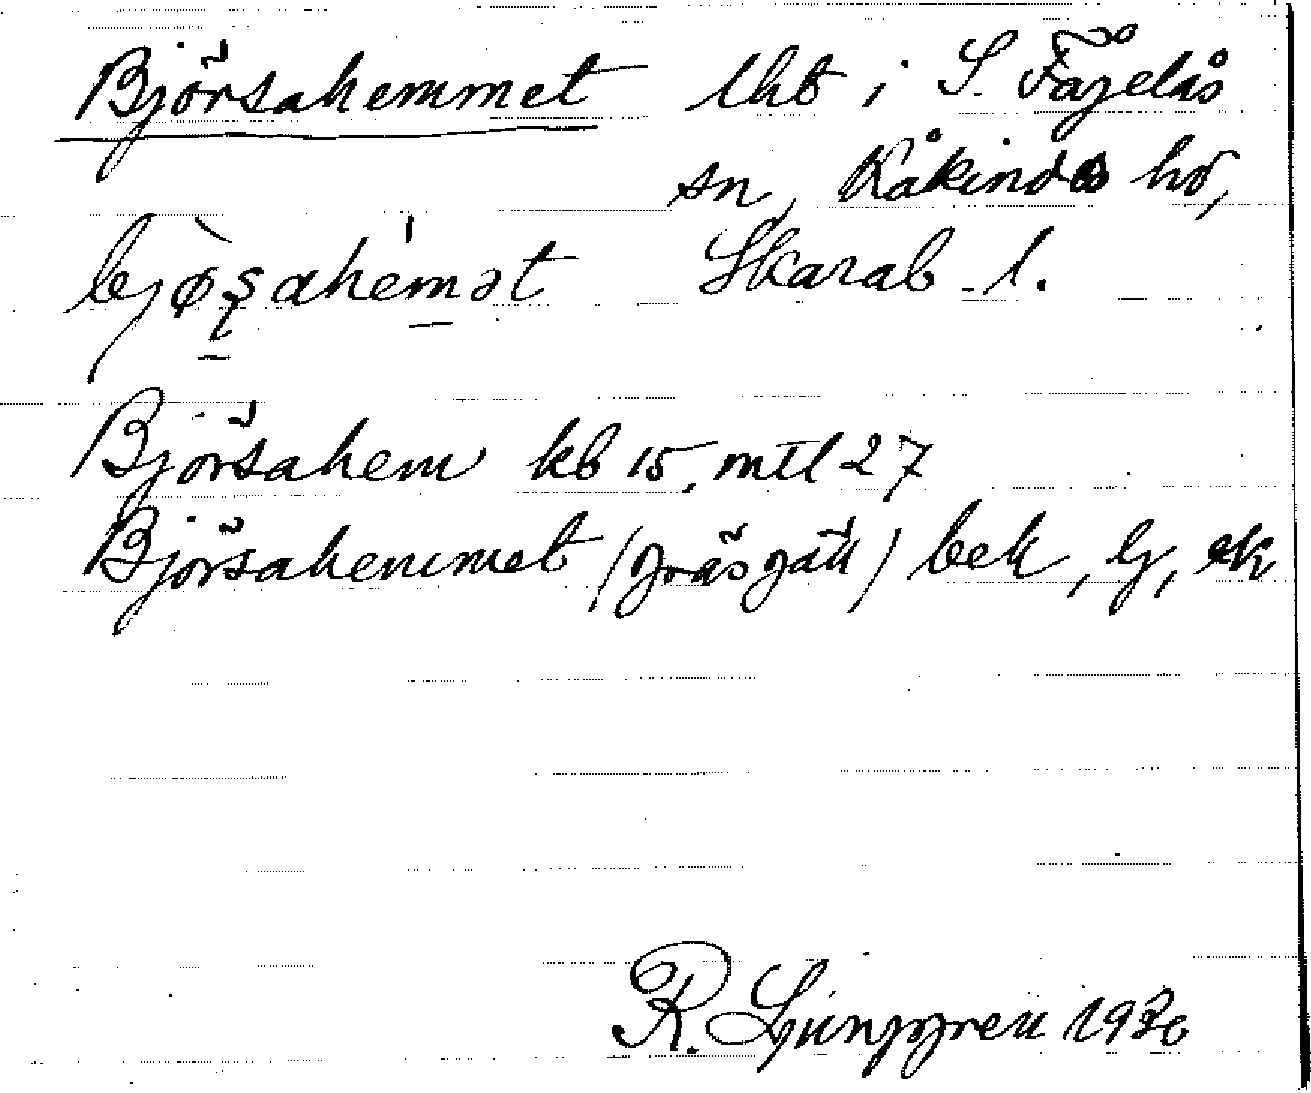 Björsahemmet lht i S. Fågelås
sn, Kåkinds hd,
bjøʂahemət Skarab. l.
Björsahem kb 15, mtl 27
Björsahemmet (gräsgäll) bek, lj, ek
R. Ljunggren 1930